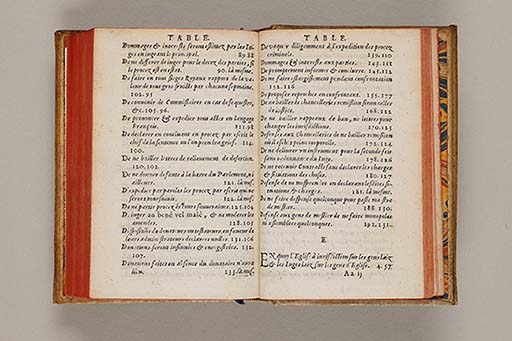 TABLE.
Dommages & interests seront estimez par les Iu-
ges en iugeant le principal. 89.88
De ne differer de iuger pour le decez des parties, si
le procez est en estat. 90. là mesme.
De faire en tous sieges Royaux rapport de la va-
leur de tous gros fruicts par chacune sepmaine,
102.95
De commettre de Commissaires en cas de sequestre,
&c. 105.96.
De prononcer & expedier tous actes en langage
François. 111.98
De declarer en concluant en procez par escrit le
chef de la sentence ou l'on prend grief. 114.
100.
De ne bailler lettres de relieuement de desertion.
120.102
De ne donner defauts à la barre du Parlement, ni
ailleurs. 121. là mes.
D'expedier par paroles les procez par escrit qui ne
seront soustenables. 122. là mes.
De ne partir procez es Cours souueraines. 125.104
D. iuger an benè vel malè, & ne moderer les
amendes. 128.105
131.106
Donations seront insinuees & enregistrees. 132.
107.
Donations faites en absence du donataire
133. là mes.
TABLE.
De vaquer diligemment à l'expedition des procez
criminels. 139.110
Dommages & interests aux parties. 143.111
De promptement informer & conclurre. 145.112
De faire estargissement pendant confrontation
152.116
De proposer reproches en confrontant. 155.177
De ne bailler és chancelleries remission sinon celles
de iustice. 168.122
De ne bailler rappeaux de ban, ne lettres pour
changer les iurisdictions. 170.123
Defenses aux Chancelleries de ne bailler remission
où il eschet peine corporelle. 172.124
De ne deliurer vn instrument pour la seconde fois
sans ordonnance du Iuge. 178.126
De ne receuoir Contracts sans declarer les charges
& situations des choses. 180.127
Defense de ne mespren les en declarant lesdites si-
tuations & charges. 181. là mesme.
De ne faire despense quelconque pour passe maistre
de mestier. 188.130.
Defense aux gens de mestier de ne faire monopoles
ni assemblees quelconques. 191.131.
E
EXquoy l'Eglise a iurisdiction sur les gens laiz
& les Iuges laiz sur les gens d'Eglise. 4.57.
Aa ij